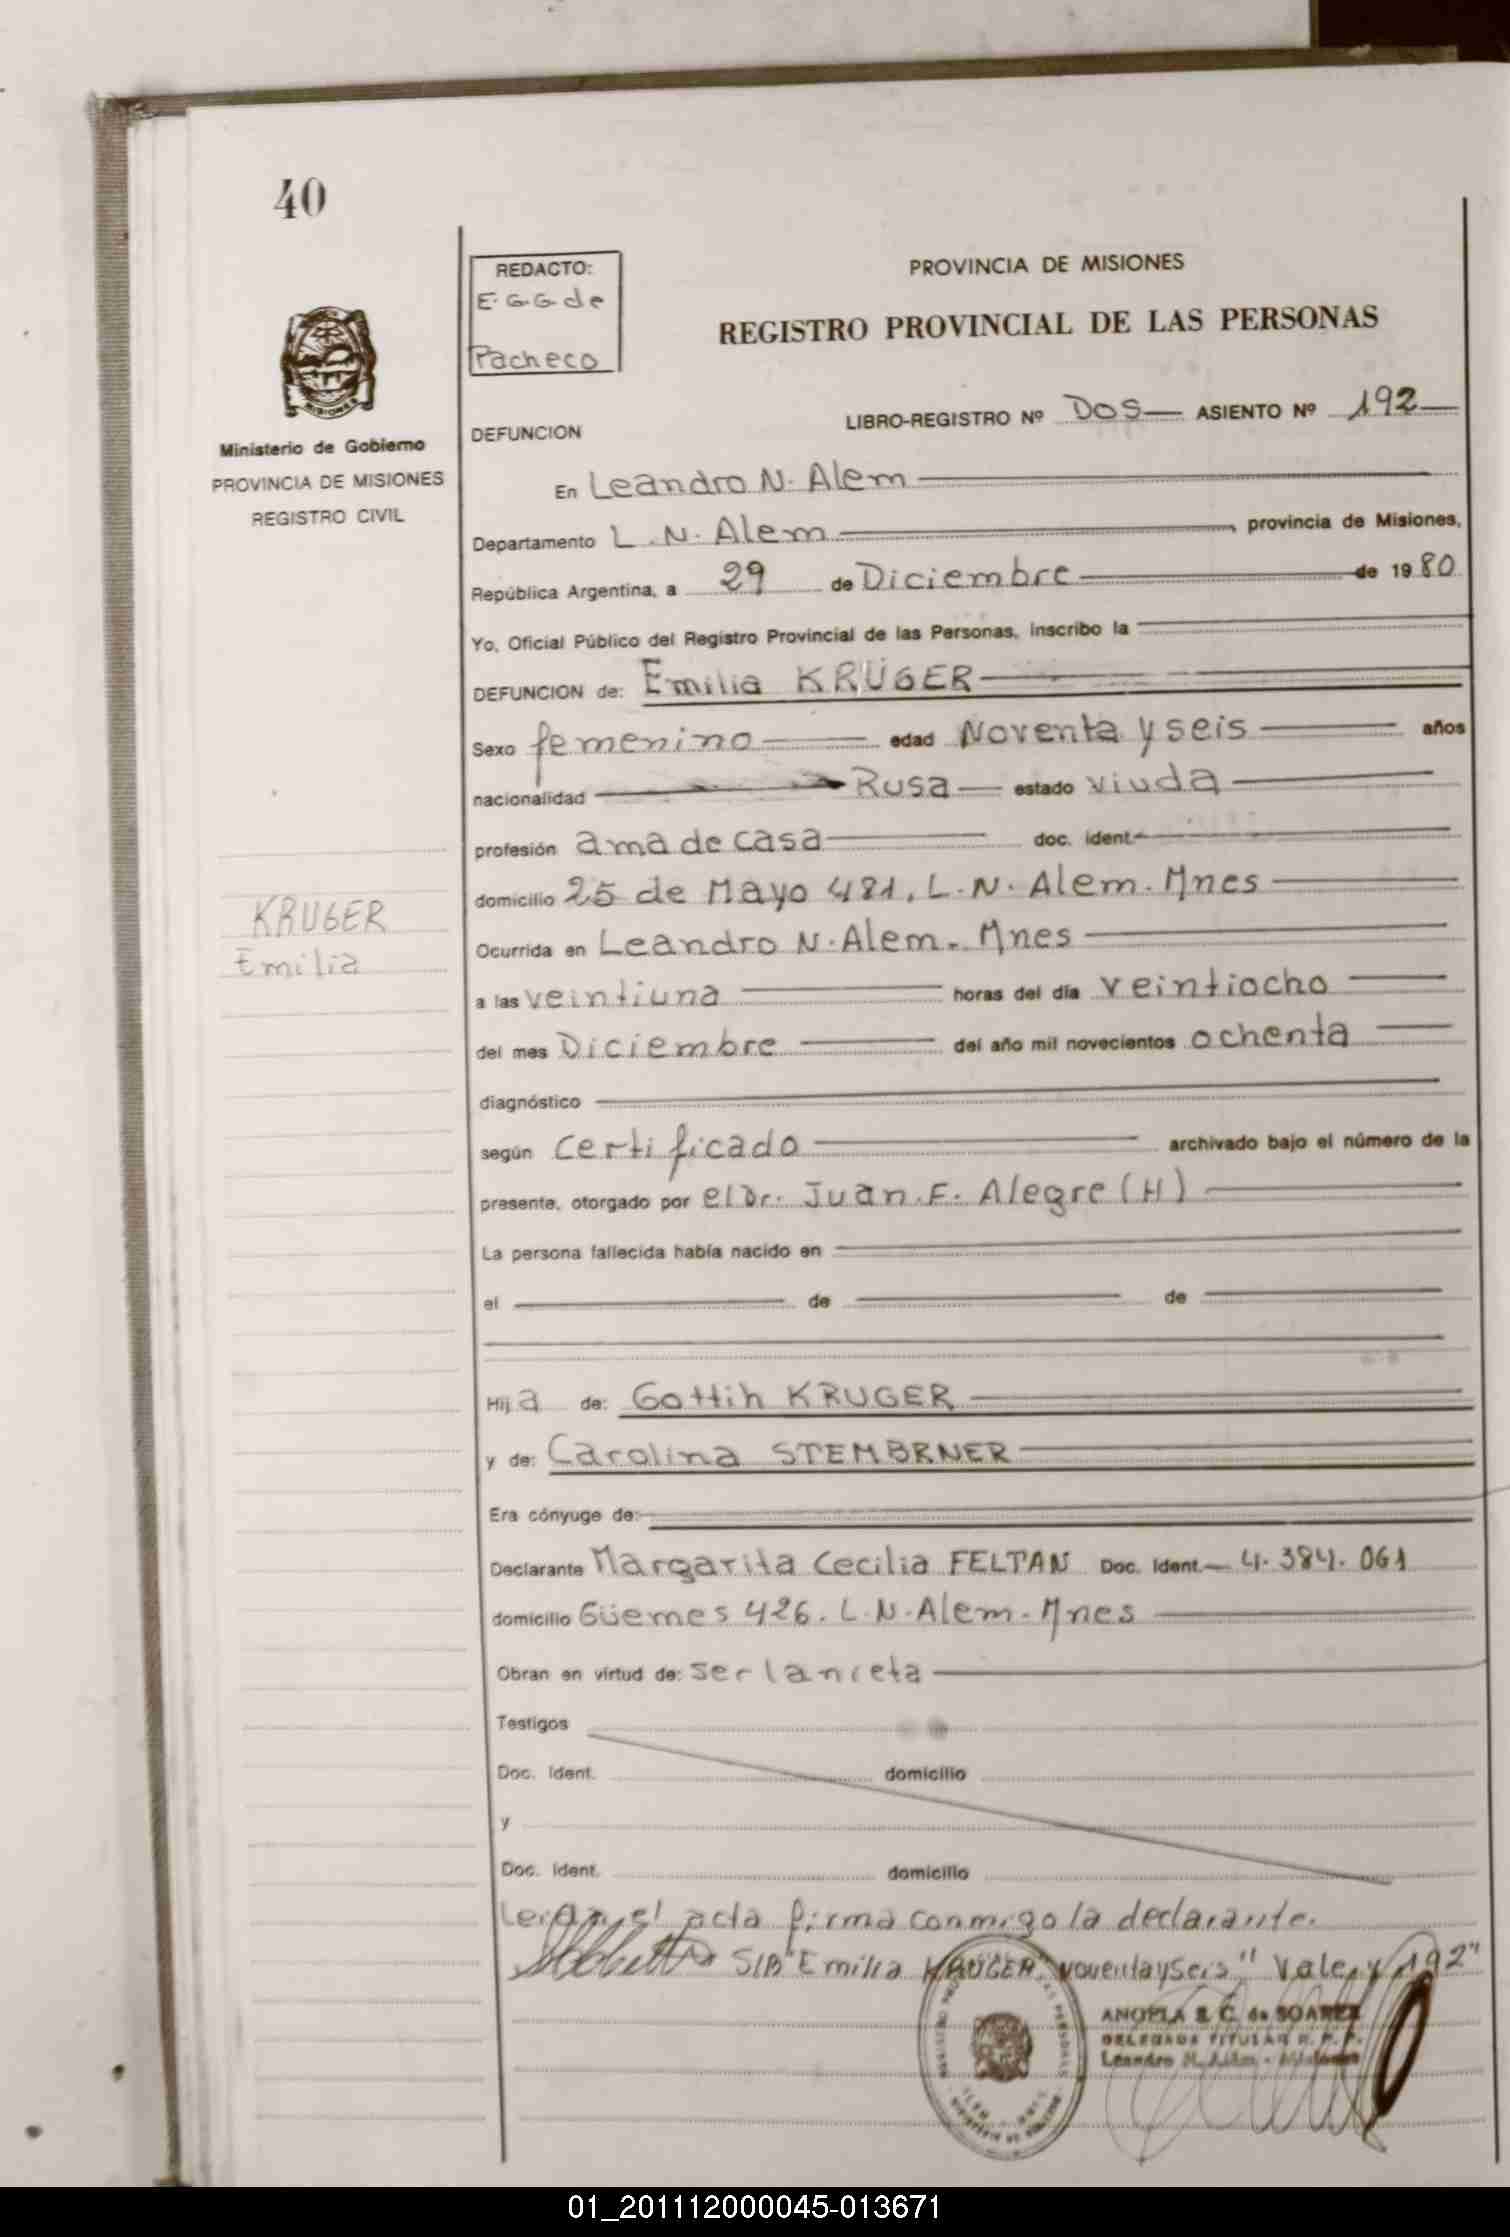 40
REDACTO:
E.G.G. de
Pacheco
PROVINCIA DE MISIONES
REGISTRO PROVINCIAL DE LAS PERSONAS
MISIONES
Ministerio de Gobierno
PROVINCIA DE MISIONES
REGISTRO CIVIL
DEFUNCION
LIBRO-REGISTRO Nº DOS ASIENTO Nº 192
En Leandro N. Alem
Departamento L. N. Alem, provincia de Misiones,
República Argentina, a 29 de Diciembre de 1980
Yo, Oficial Público del Registro Provincial de las Personas, inscribo la
DEFUNCION de: Emilia KRÜGER
Sexo femenino edad Noventa y seis años
nacionalidad Rusa estado viuda
profesión ama de casa doc. ident.
domicilio 25 de Mayo 481, L. N. Alem. Mnes
KRUGER
Emilia
Ocurrida en Leandro N. Alem. Mnes
a las veintiuna horas del día veintiocho
del mes Diciembre del año mil novecientos ochenta
diagnóstico
según certificado archivado bajo el número de la
presente, otorgado por el Dr. Juan. F. Alegre (H)
La persona fallecida había nacido en
el de de
Hija de: Gottih KRUGER
y de: Carolina STEMBRNER
Era cónyuge de:
Declarante Margarita Cecilia FELTAN Doc. Ident. 4.384.061
domicilio Güemes 426. L. N. Alem. Mnes
Obran en virtud de: ser la nieta
Testigos
Doc. Ident. domicilio
y
Doc. Ident. domicilio
el acta firma conmigo la declarante.
S/B "Emilia KRÜGER, noventa y seis" Vale, y 192"
ANGELA S. C. de SOAREZ
DELEGADA TITULAR R. P. P.
Leandro N. Alem - Misiones
01_201112000045-013671